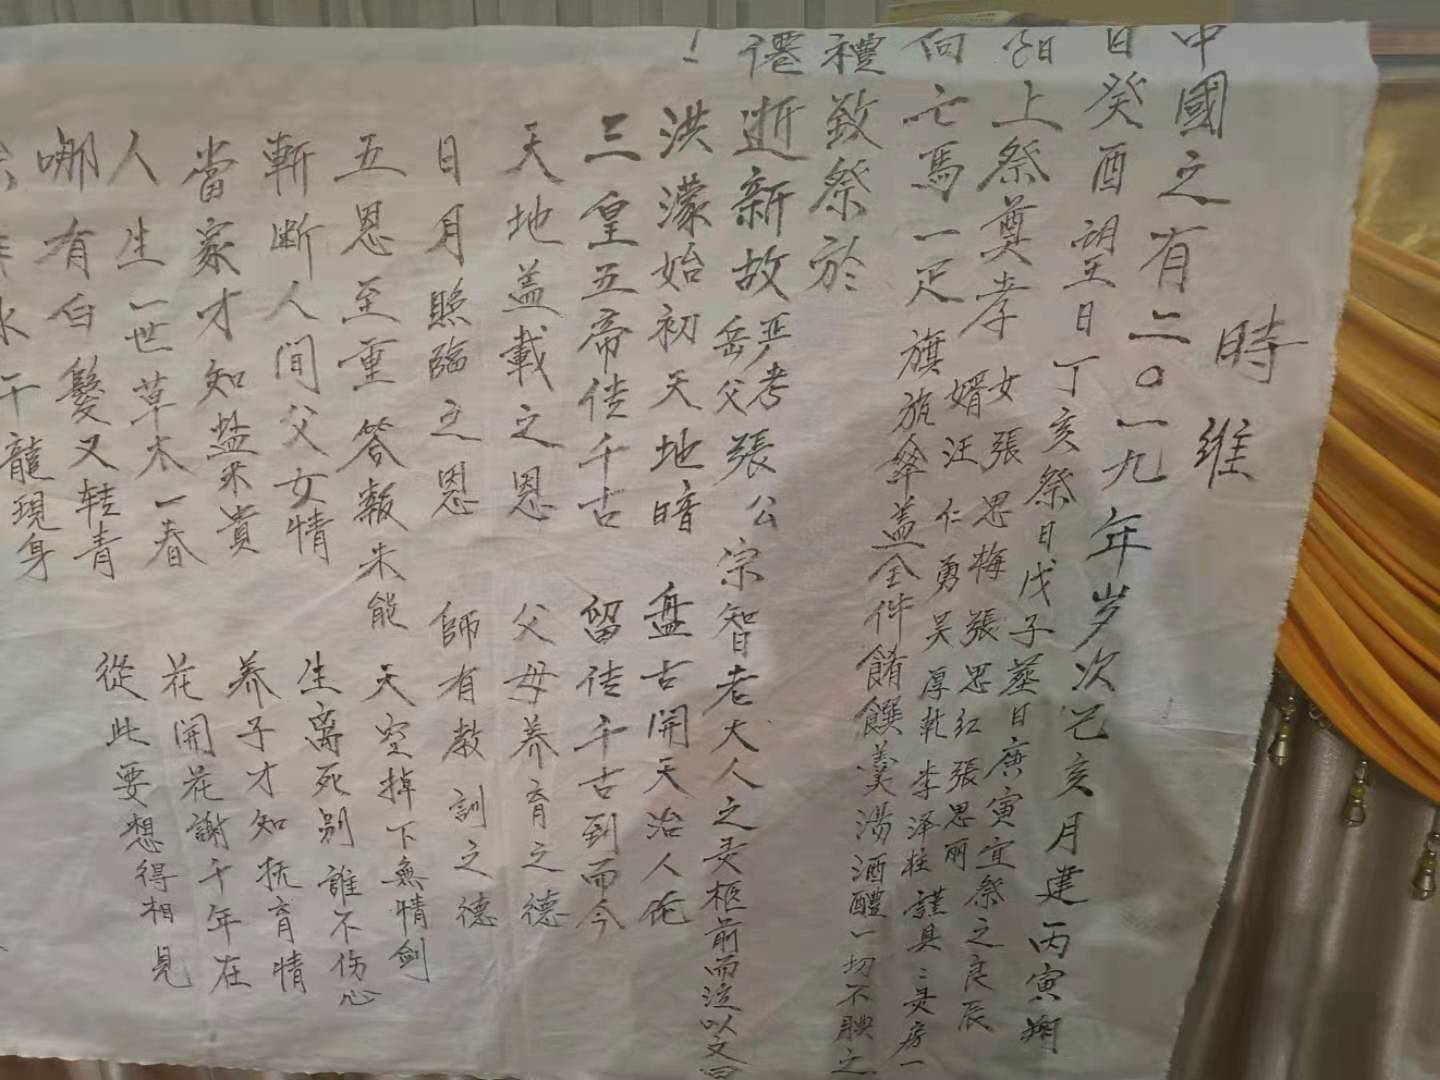 時維
中國之有二〇一九年岁次己亥月建丙寅朔
日癸酉望日丁亥祭日戊子葬日庚寅宜祭之良辰
上祭奠孝女張思梅張思红張思丽
婿汪仁勇吴厚乾李泽柱謹具灵房一
向亡馬一疋旗旐傘蓋全件餚饌羹湯酒醴一切不腆之
禮致祭於
僊逝新故严考岳父張公宗智老大人之灵柩前而泣以文曰
!
洪濛始初天地暗 盘古開天治人伦
三皇五帝传千古 留传千古到而今
天地盖載之恩 父母养育之德
日月照臨之恩 師有教訓之德
五恩至重答報未能 天空掉下無情劍
斬断人间父女情 生离死别誰不伤心
當家才知盐米貴 养子才知抚育情
人生一世草木一春 花開花謝千年在
哪有白髮又转青 從此要想得相見
水午龍現身